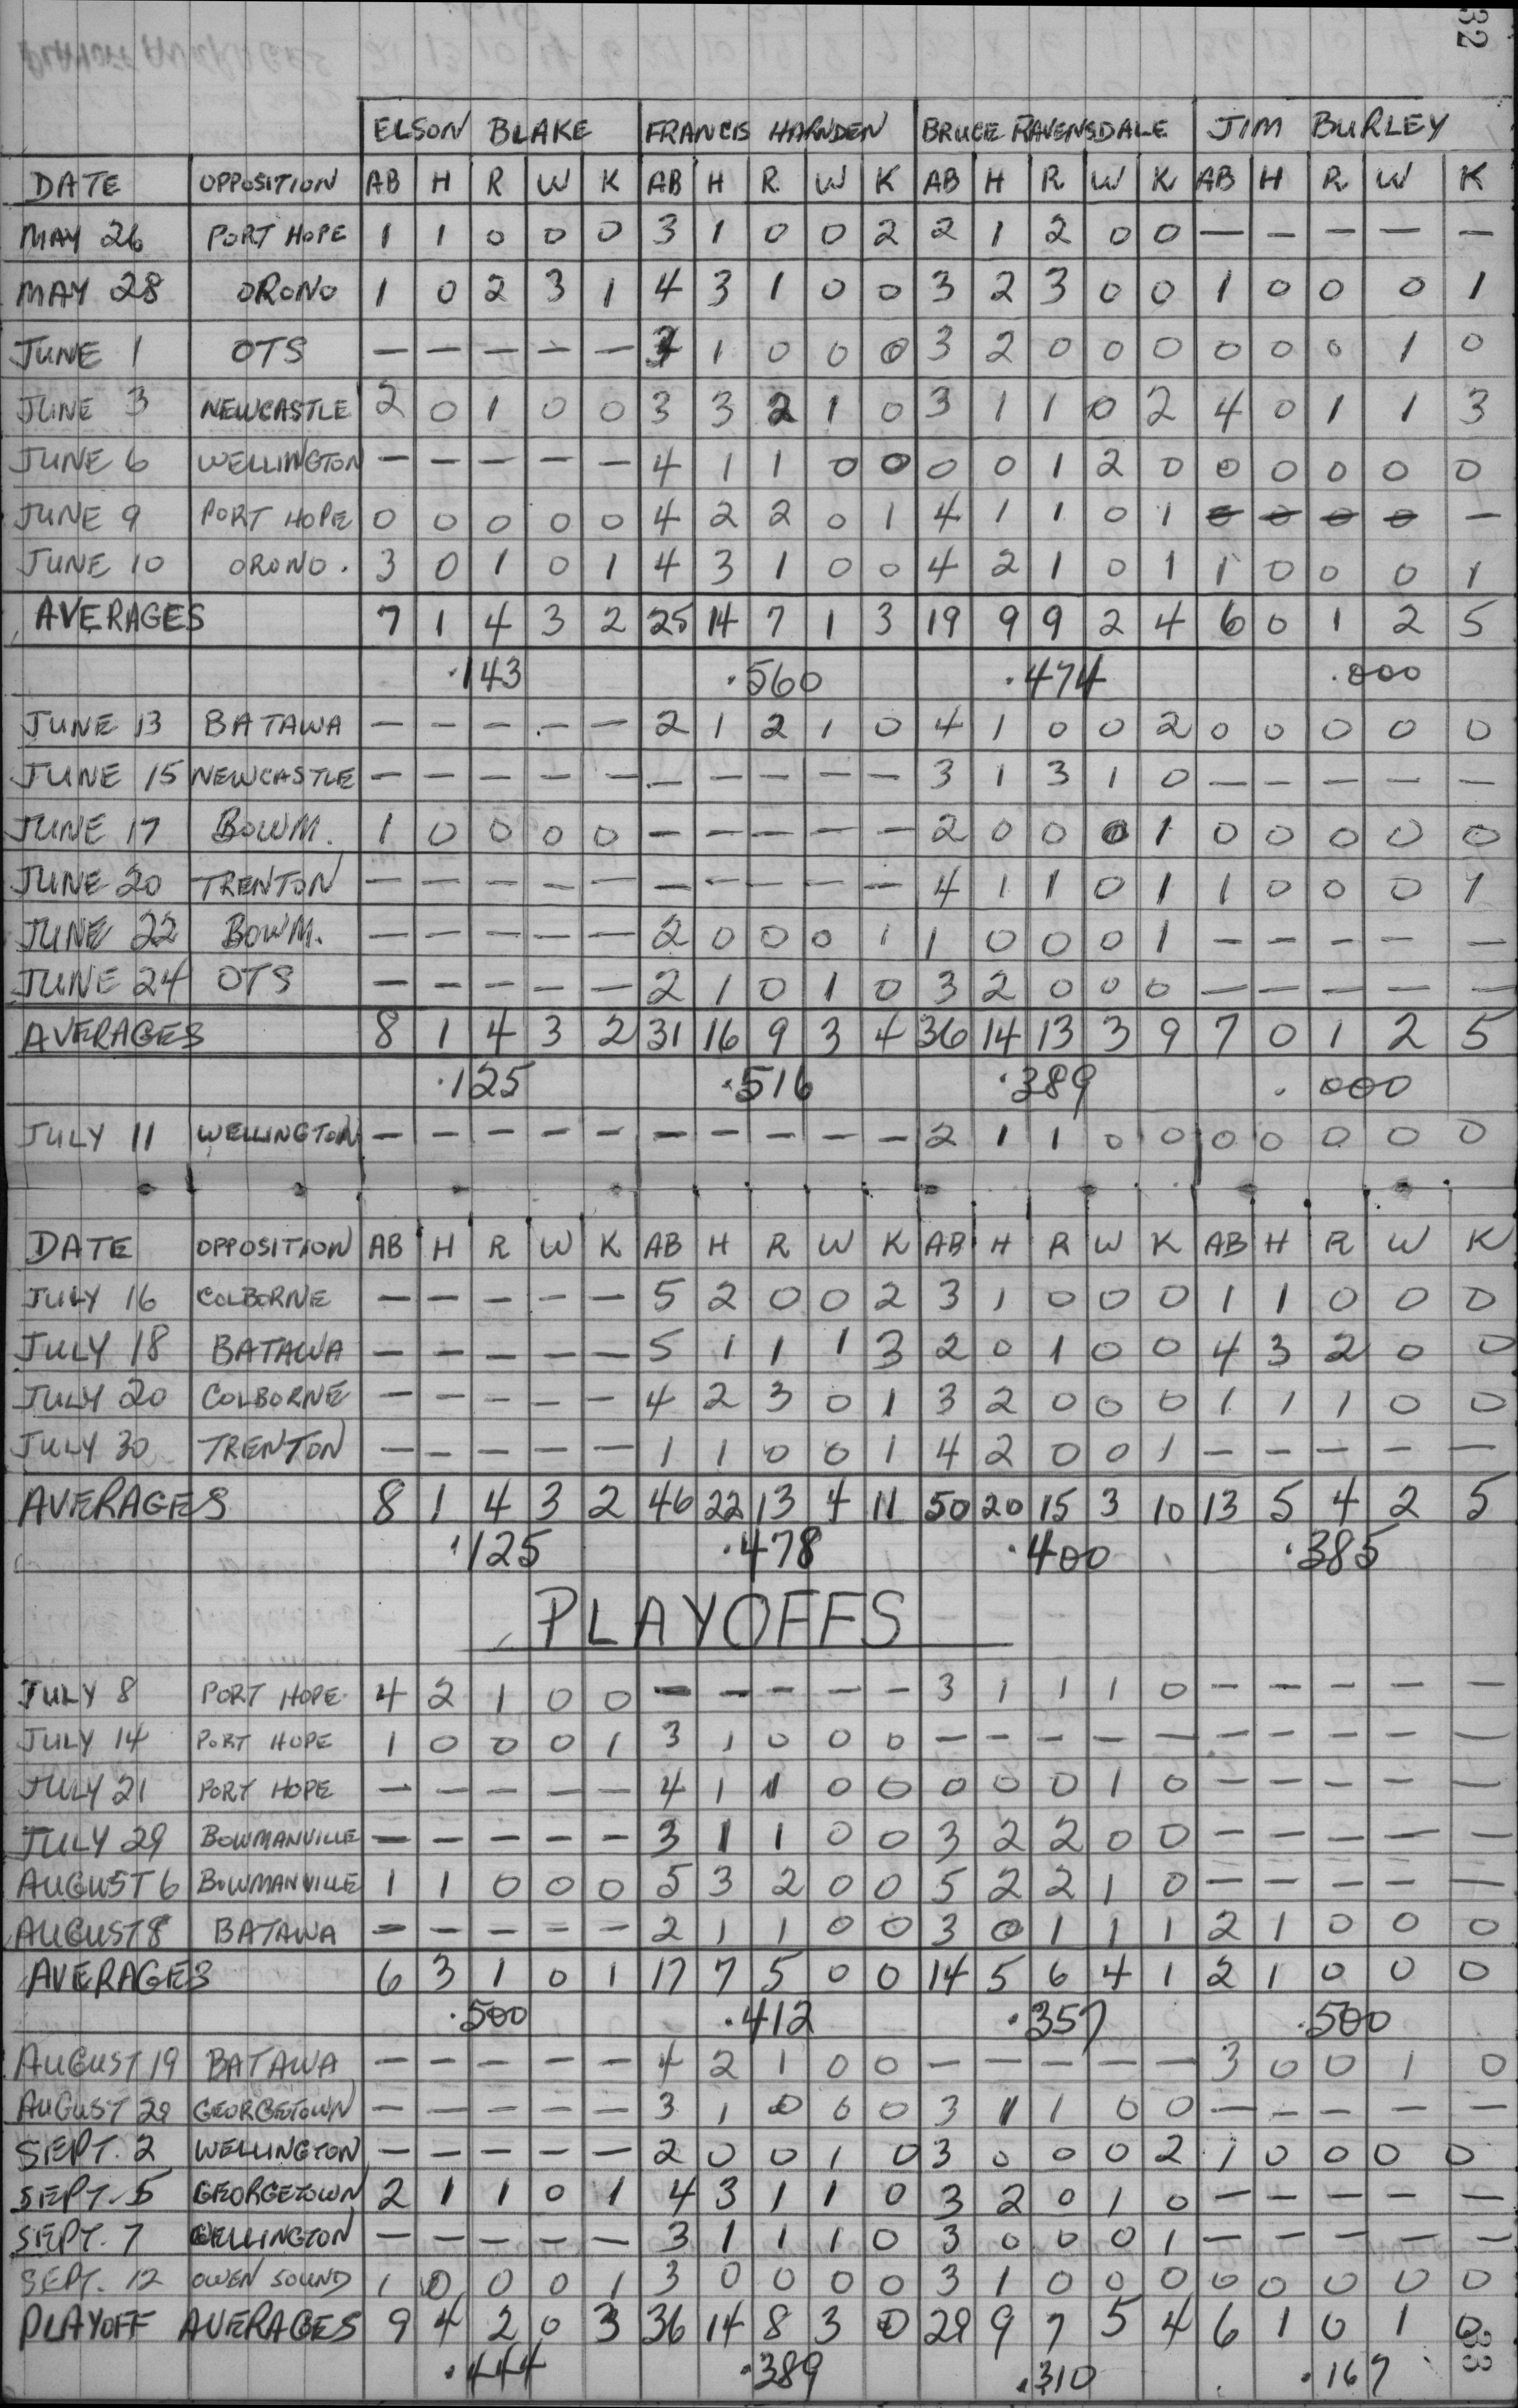 32
ELSON BLAKE FRANCIS HARNDEN BRUCE RAVENSDALE JIM BURLEY
DATE OPPOSITION AB H R W K AB H R W K AB H R W K AB H R W K
MAY 26 PORT HOPE 1 1 0 0 0 3 1 0 0 2 2 1 2 0 0 — — — — —
MAY 28 ORONO 1 0 2 3 1 4 3 1 0 0 3 2 3 0 0 1 0 0 0 1
JUNE 1 OTS — — — — — 3 1 0 0 0 3 2 0 0 0 0 0 0 1 0
JUNE 3 NEWCASTLE 2 0 1 0 0 3 3 2 1 0 3 1 1 0 2 4 0 1 1 3
JUNE 6 WELLINGTON — — — — — 4 1 1 0 0 0 0 1 2 0 0 0 0 0 0
JUNE 9 PORT HOPE 0 0 0 0 0 4 2 2 0 1 4 1 1 0 1 — — — — —
JUNE 10 ORONO. 3 0 1 0 1 4 3 1 0 0 4 2 1 0 1 1 0 0 0 1
AVERAGES 7 1 4 3 2 25 14 7 1 3 19 9 9 2 4 6 0 1 2 5
.143 .560 .474 .000
JUNE 13 BATAWA — — — — — 2 1 2 1 0 4 1 0 0 2 0 0 0 0 0
JUNE 15 NEWCASTLE — — — — — — — — — — 3 1 3 1 0 — — — — —
JUNE 17 BOWM. 1 0 0 0 0 — — — — — 2 0 0 0 1 0 0 0 0 0
JUNE 20 TRENTON — — — — — — — — — — 4 1 1 0 1 1 0 0 0 1
JUNE 22 BOWM. — — — — — 2 0 0 0 1 1 0 0 0 1 — — — — —
JUNE 24 OTS — — — — — 2 1 0 1 0 3 2 0 0 0 — — — — —
AVERAGES 8 1 4 3 2 31 16 9 3 4 36 14 13 3 9 7 0 1 2 5
.125 .516 .389 .000
JULY 11 WELLINGTON — — — — — — — — — — 2 1 1 0 0 0 0 0 0 0
DATE OPPOSITION AB H R W K AB H R W K AB H R W K AB H R W K
JULY 16 COLBORNE — — — — — 5 2 0 0 2 3 1 0 0 0 1 1 0 0 0
JULY 18 BATAWA — — — — — 5 1 1 1 3 2 0 1 0 0 4 3 2 0 0
JULY 20 COLBORNE — — — — — 4 2 3 0 1 3 2 0 0 0 1 1 1 0 0
JULY 30 TRENTON — — — — — 1 1 0 0 1 4 2 0 0 1 — — — — —
AVERAGES 8 1 4 3 2 46 22 13 4 11 50 20 15 3 10 13 5 4 2 5
.125 .478 .400 .385
PLAYOFFS
JULY 8 PORT HOPE 4 2 1 0 0 — — — — — 3 1 1 1 0 — — — — —
JULY 14 PORT HOPE 1 0 0 0 1 3 1 0 0 0 — — — — — — — — — —
JULY 21 PORT HOPE — — — — — 4 1 1 0 0 0 0 0 1 0 — — — — —
JULY 29 BOWMANVILLE — — — — — 3 1 1 0 0 3 2 2 0 0 — — — — —
AUGUST 6 BOWMANVILLE 1 1 0 0 0 5 3 2 0 0 5 2 2 1 0 — — — — —
AUGUST 8 BATAWA — — — — — 2 1 1 0 0 3 0 1 1 1 2 1 0 0 0
AVERAGES 6 3 1 0 1 17 7 5 0 0 14 5 6 4 1 2 1 0 0 0
.500 .412 .357 .500
AUGUST 19 BATAWA — — — — — 4 2 1 0 0 — — — — — 3 0 0 1 0
AUGUST 29 GEORGETOWN — — — — — 3 1 0 0 0 3 1 1 0 0 — — — — —
SEPT. 2 WELLINGTON — — — — — 2 0 0 1 0 3 0 0 0 2 1 0 0 0 0
SEPT. 5 GEORGETOWN 2 1 1 0 1 4 3 1 1 0 3 2 0 1 0 — — — — —
SEPT. 7 WELLINGTON — — — — — 3 1 1 1 0 3 0 0 0 1 — — — — —
SEPT. 12 OWEN SOUND 1 0 0 0 1 3 0 0 0 0 3 1 0 0 0 0 0 0 0 0
PLAYOFF AVERAGES 9 4 2 0 3 36 14 8 3 0 29 9 7 5 4 6 1 0 1 0
.444 .389 .310 .167
33